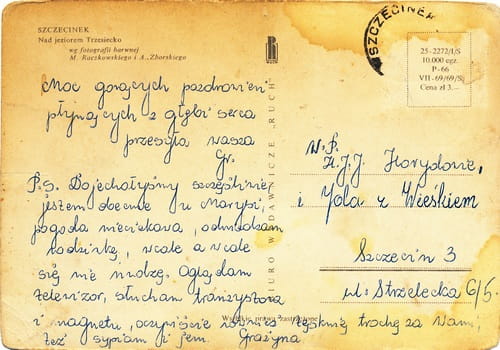 SZCZECINEK
Nad jeziorem Trzesiecko
wg fotografii barwnej
M. Raczkowskiego i A. Zborskiego
Moc gorących pozdrowień
płynących z głębi serca
przesyła wasza
Gr.
P.S. Dojechałyśmy szczęśliwie
jestem obecnie u Marysi,
pogoda nieciekawa, odwiedzam
rodzinkę, wcale a wcale
się nie nudzę. Oglądam
telewizor, słucham tranzystora
i magnetu, oczywiście również tęsknię trochę za Wami,
też sypiam i jem. Grażyna
BIURO WYDAWNICZE „RUCH"
Wszelkie prawa zastrzeżone
SZCZECINEK
25-2272/I/S
10.000 egz.
P-66
VII-69/69/S
Cena zł 3.—
W.P.
H.J.J.
i Jola z Wieśkiem
Szczecin 3
ul. Strzelecka 6/5